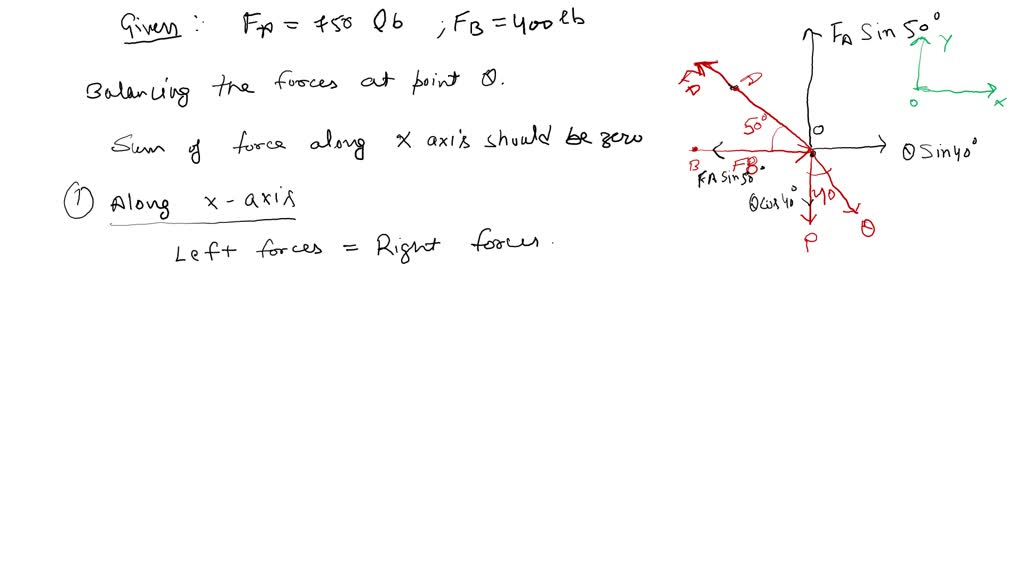 Given :- FA = 750 lb ; FB = 400 lb
Balancing the forces at point O.
Sum of force along x axis should be zero
① Along x-axis
Left forces = Right forces.
FA Sin 50°
Y
O
X
D
50°
O
B
FB
Q Sin 40°
FA Sin 50°
Q cos 40°
40
P
Q